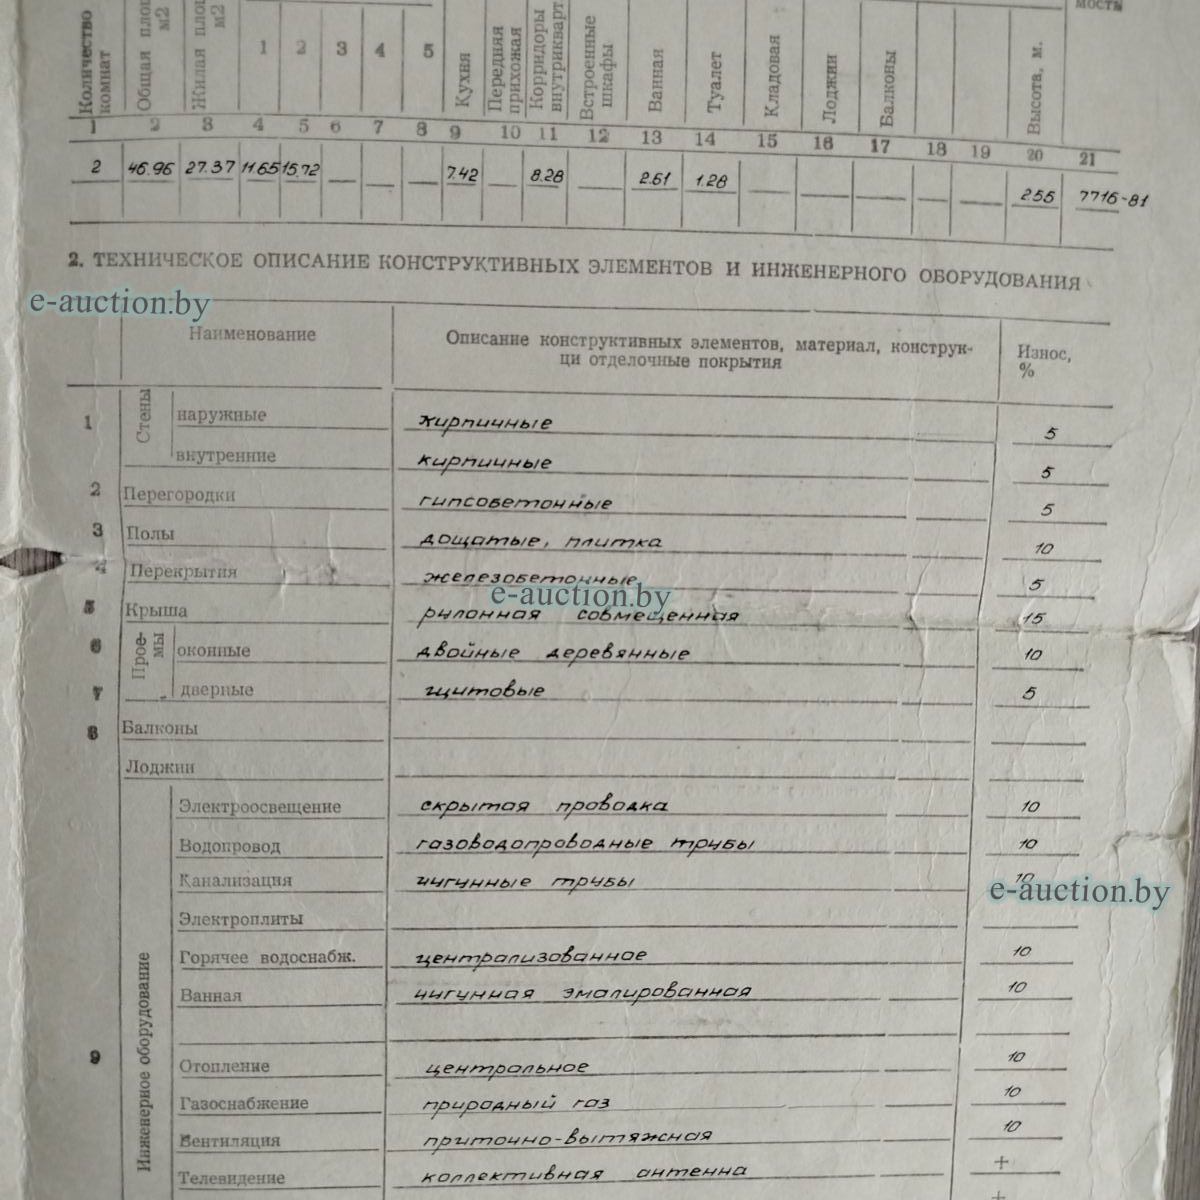 Количество комнат | Общая пло м2 | Жилая пло м2 | 1 | 2 | 3 | 4 | 5 | Кухня | Передняя прихожая | Корридоры внутрикварт. | Встроенные шкафы | Ванная | Туалет | Кладовая | Лоджии | Балконы | Высота, м. | мость
1 2 3 4 5 6 7 8 9 10 11 12 13 14 15 16 17 18 19 20 21
2 46.96 27.37 11.65 15.72 — — — 7.42 8.28 — 2.61 1.28 — — — — — 2.55 7716-81
2. ТЕХНИЧЕСКОЕ ОПИСАНИЕ КОНСТРУКТИВНЫХ ЭЛЕМЕНТОВ И ИНЖЕНЕРНОГО ОБОРУДОВАНИЯ
e-auction.by
Наименование | Описание конструктивных элементов, материал, конструк-
ци отделочные покрытия | Износ, %
1 Стены наружные кирпичные 5
внутренние кирпичные 5
2 Перегородки гипсобетонные 5
3 Полы дощатые, плитка 10
4 Перекрытия железобетонные 5
e-auction.by
5 Крыша рулонная совмещенная 15
6 Прое-мы оконные двойные деревянные 10
7 дверные щитовые 5
8 Балконы
Лоджии
9 Инженерное оборудование
Электроосвещение скрытая проводка 10
Водопровод газоводопроводные трубы 10
Канализация чугунные трубы 10
e-auction.by
Электроплиты
Горячее водоснабж. централизованное 10
Ванная чугунная эмалированная 10
Отопление центральное 10
Газоснабжение природный газ 10
Вентиляция приточно-вытяжная 10
Телевидение коллективная антенна +
+